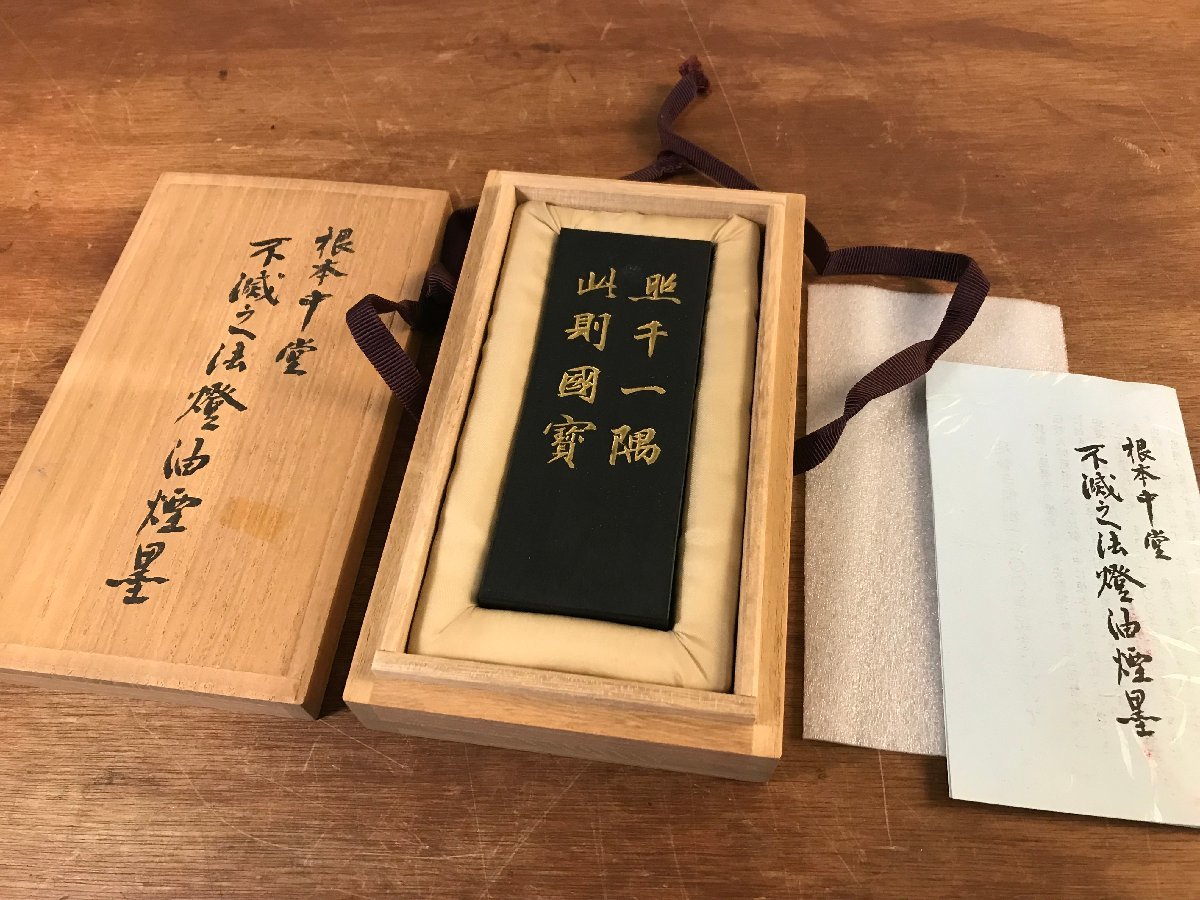 根本中堂
不滅之法燈油煙墨
照千一隅
此則國寶
根本中堂
不滅之法燈油煙墨